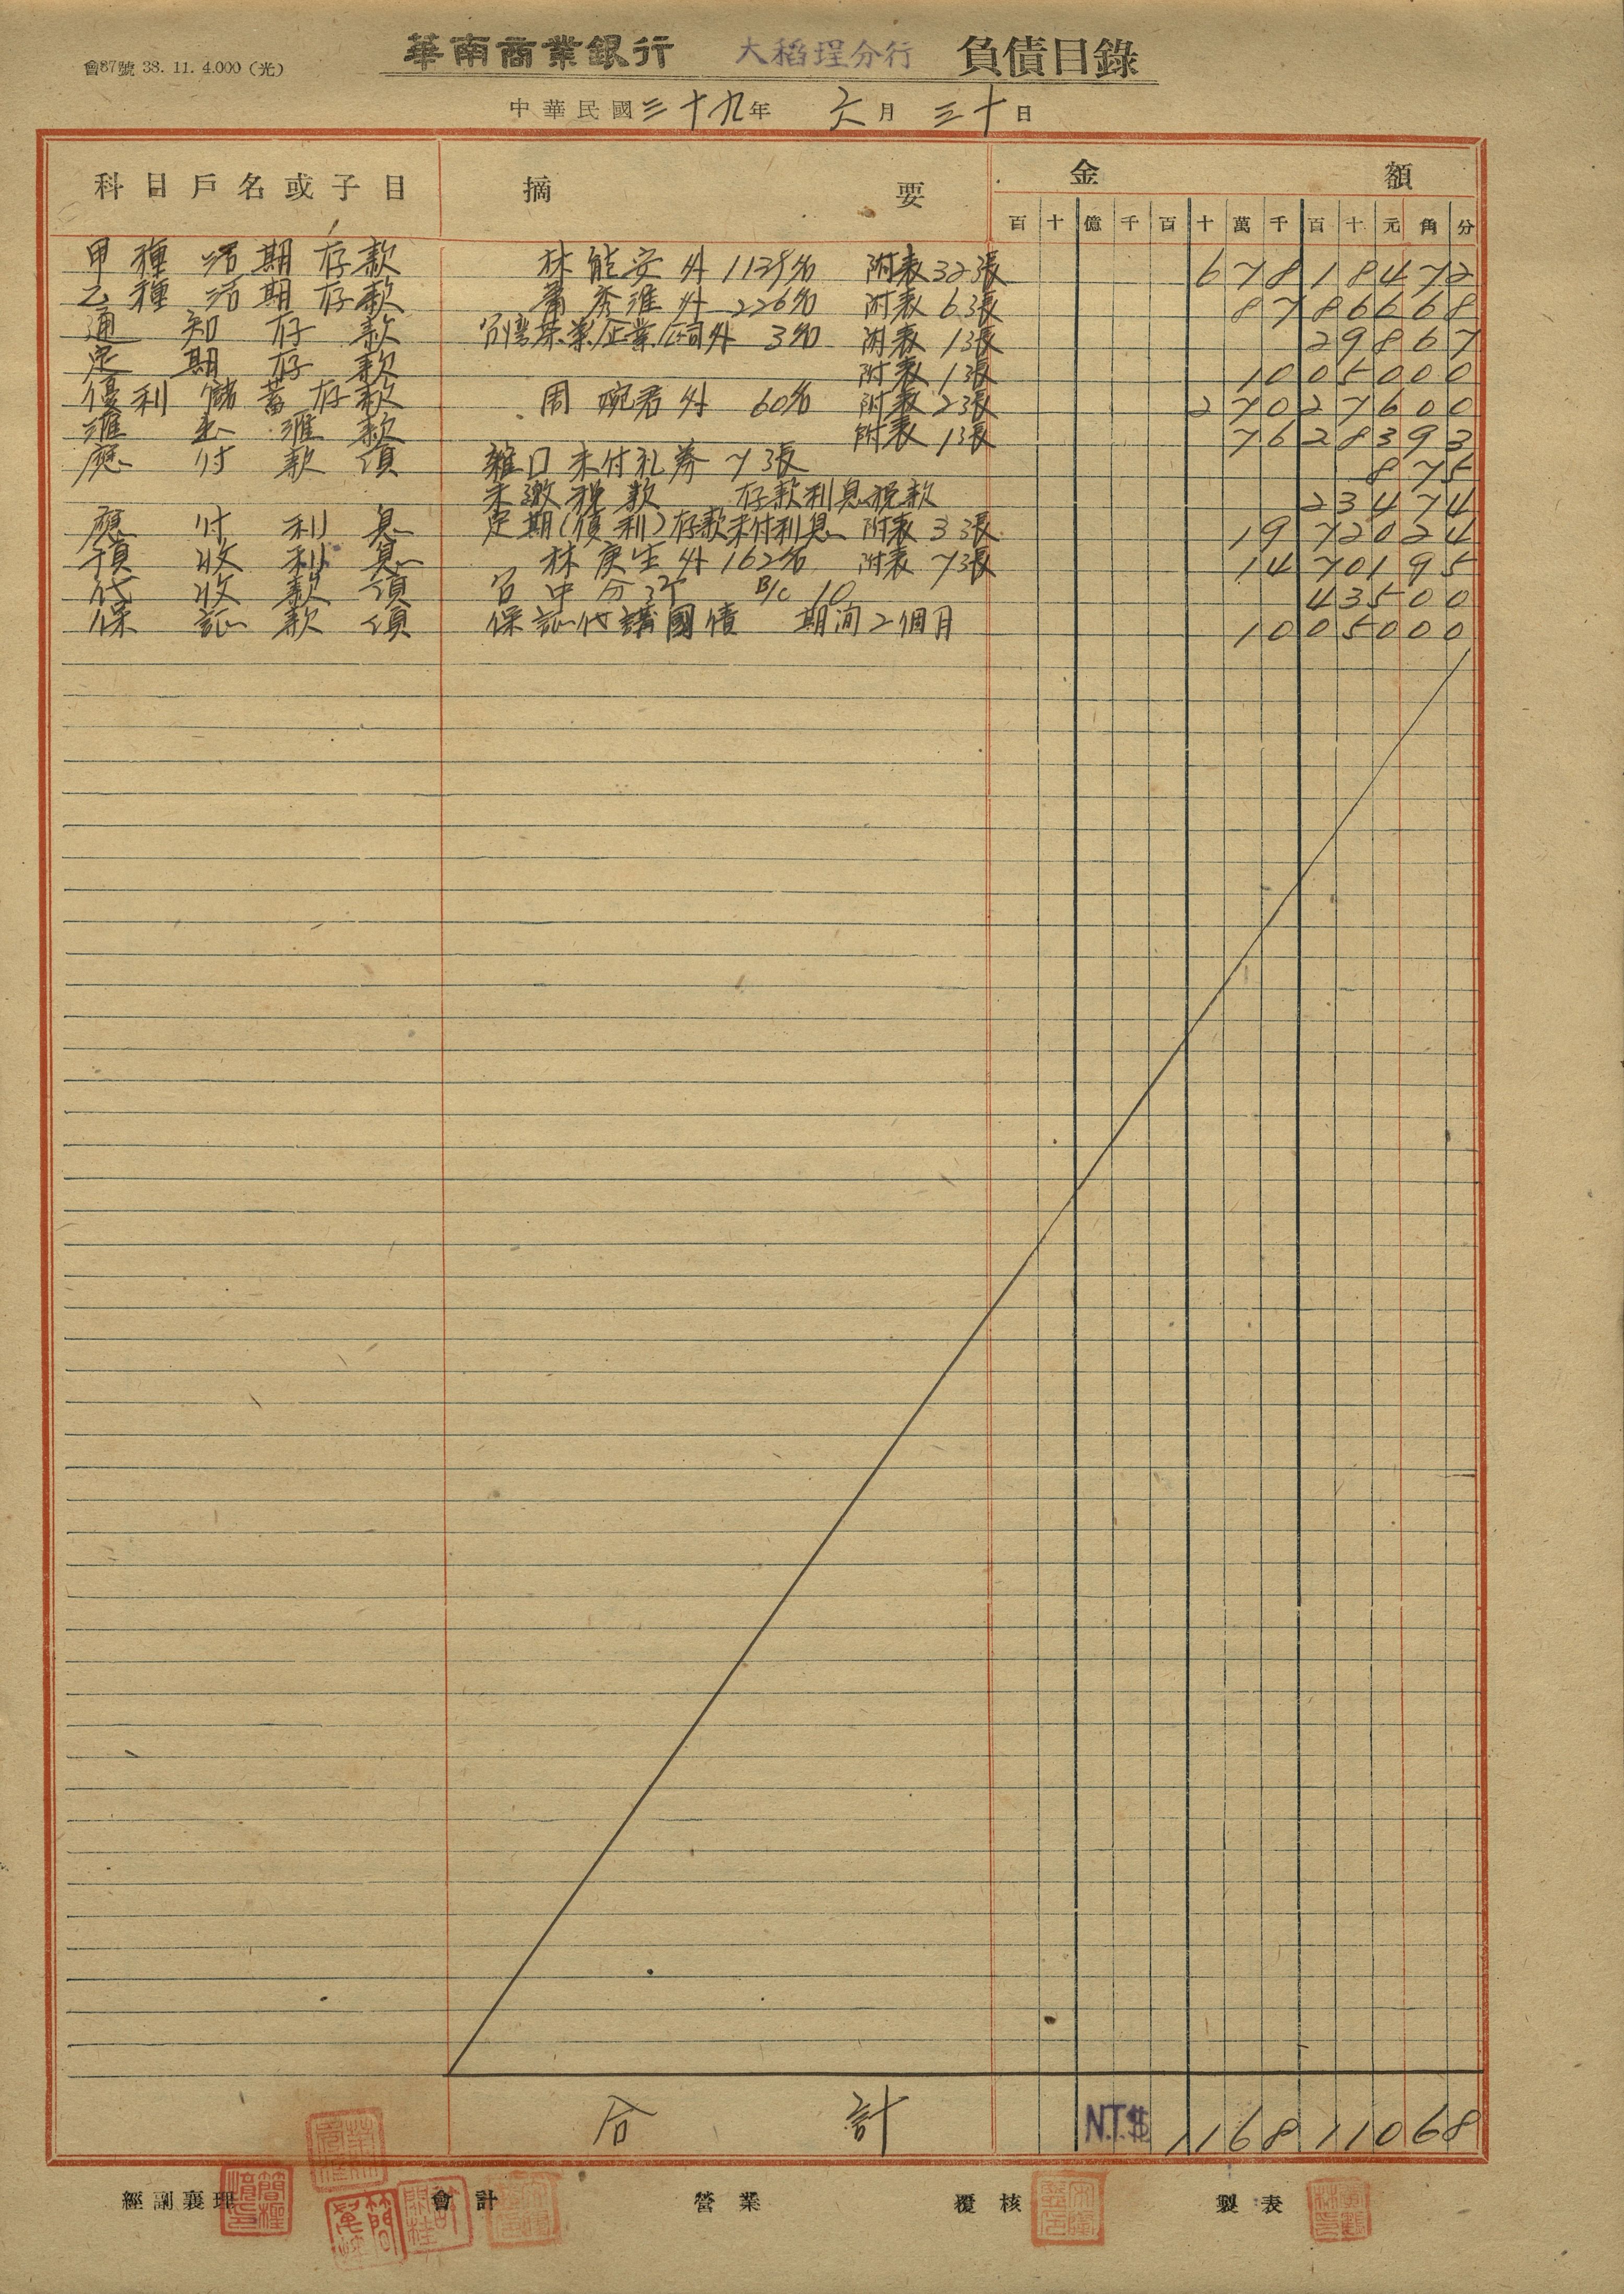 會87號 38. 11. 4.000 (光)
華南商業銀行 大稻埕分行 負債目錄
中華民國三十九年 六月 三十日
科目戶名或子目 摘要 金額
百 十 億 千 百 十 萬 千 百 十 元 角 分
甲種活期存款 林能安外 附表32張 67818472
乙種活期存款 秀淮外226名 附表6張 8786668
通知存款 台灣茶業企業公司外3名 附表1張 29867
定期存款 附表1張 1005000
優利儲蓄存款 周婉君外60名 附表2張 27027600
滙出滙款 附表1張 7628393
應付款項 雜口未付礼券 73張 875
未繳稅款 存款利息稅款 23474
應付利息 定期(優利)存款未付利息 附表33張 1972024
預收利息 林庚生外162名 附表7張 1470195
代收款項 台中分行 B/C 10 43500
保証款項 保証代購國債 期间2個月 1005000
合計 N.T.$ 116811068
經副襄理 會計 營業 覆核 製表